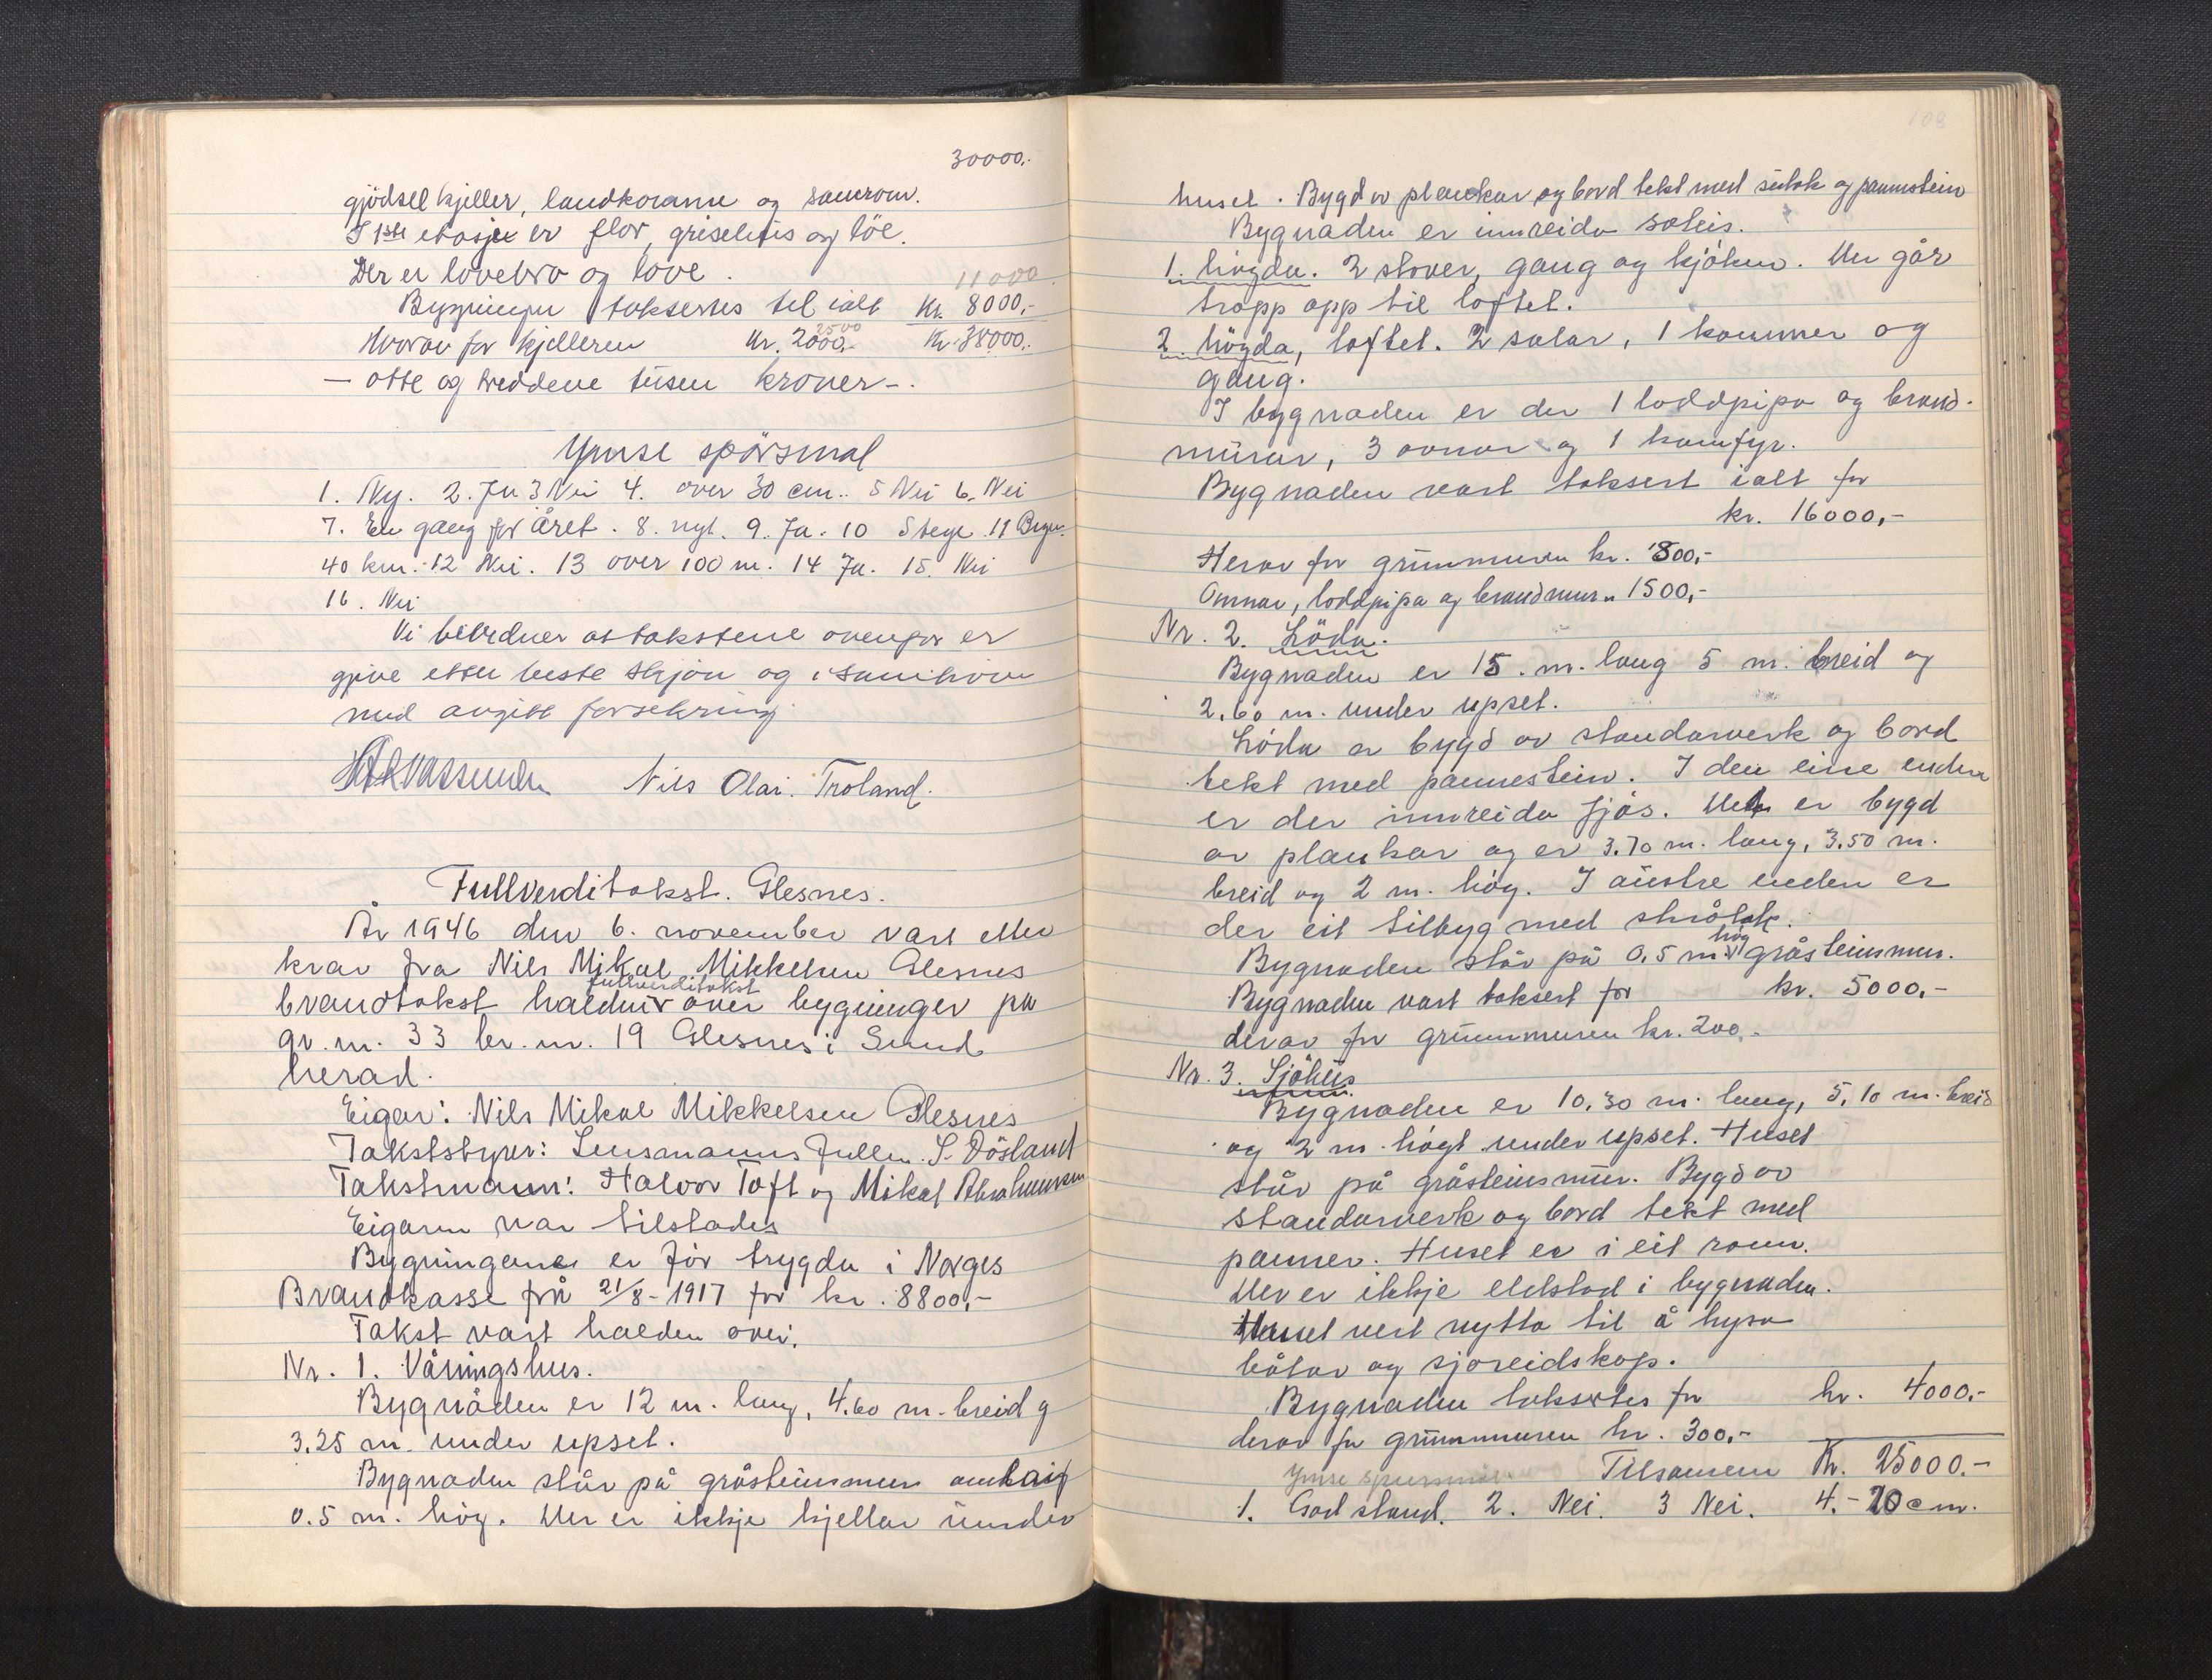 30000.-
gjödselkjeller, landkoranne og
I 1ste etasje er flor, grisehus og löe.
Der er lovebro og love.
11000
Bygningen taksernes til ialt Kr. 8000,-
2500
Hvorav for kjelleren kr. 2000,- Kr. 38000.-
— otte og treddeve tusen kroner -.
Ymse spörsmal
1. Ny. 2. Ja 3 Nei 4. over 30 cm.. 5 Nei 6. Nei
7. En gang for Året. 8. nyt. 9. Ja. 10 Stege 11
40 km. 12 Nei. 13 over 100 m. 14 Ja. 15. Nei
16. Nei
Vi bevidner at takstene ovenfor er
give etter beste skjön og i samhöve
med avgitt forsekring
Nils Olai. Troland.
Fullverditakst. Glesnes.
År 1946 den 6. november vart etter
krav fra Nils Mikal Mikkelsen Glesnes
fullverditakst
brandtakst halden over bygninger på
gr. nr. 33 br. nr. 19 Glesnes i Sund
herad.
Eigar: Nils Mikal Mikkelsen Glesnes
Takststyrer: Lensmanns fullm. S. Dösland
Takstmann: Halvor Toft og Mikal Abrahamsen
Eigaren var tilstades
Bygningane er för trygda i Norges
Brandkasse frå 21/8 - 1917 for kr. 8800,-
Takst vart halden over.
Nr. 1. Våningshus.
Bygnåden er 12 m. lang, 4.60 m. breid g
3.25 m. under upset.
Bygnaden står på gråsteinsmur omkring
0.5 m. høg. Der er ikkje kjellar under
108
huset. Bygd av plankar og bord tekt med sutak og pannestein
Bygnaden er innreida soleis.
1. högda. 2 stover, gang og kjöken. Der går
tropp opp til loftet.
2. högda, loftet. 2 salar, 1 kammer og
gang.
I bygnaden er der 1 loddpipa og brand-
murar, 3 ovnar og 1 komfyr.
Bygnaden vart taksert ialt for
kr. 16000,-
Herav for grunnmuren kr. 800,-
Omnar, loddpipa og brandmur " 1500,-
Nr. 2. Löda.
Bygnaden er 15. m. lang 5 m. breid og
2.60 m. under upset.
Löda er bygd av standarverk og bord
tekt med pannestein. I den eine enden
er der innreida fjös. Det er bygd
av plankar og er 3.70 m. lang, 3.50 m.
breid og 2 m. høg. I austre enden er
der eit tilbyg med skråtak.
høg
Bygnaden står på 0.5 m. gråsteinsmur.
Bygnaden vart taksert for kr. 5000.-
derav for grunnmuren kr. 200.-
Nr. 3. Sjöhus
Bygnaden er 10.30 m. lang, 5.10 m. breid
og 2 m. högt under upset. Huset
står på gråsteinsmur. Bygd av
standarverk og bord tekt med
panner. Huset er i eit rom.
Der er ikkje eldstad i bygnaden.
Huset vert nytta til å hysa
båtar og sjoreidskap.
Bygnaden taksertes for kr. 4000.-
derav for grunnmuren kr. 300.-
Ymse spursmal Tilsamen Kr. 25000.-
1. God stand. 2. Nei. 3 Nei. 4. - 20 cm.